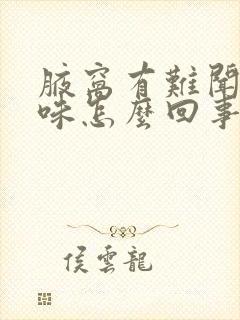 腋窩有難聞
味怎麼回事
侯雲龍